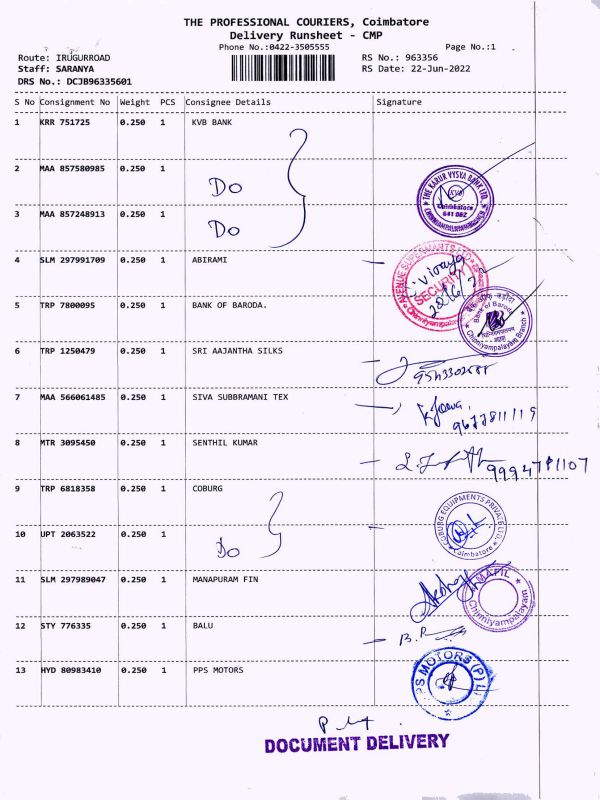 THE PROFESSIONAL COURIERS, Coimbatore
Delivery Runsheet - CMP
Phone No.:0422-3505555
Page No.:1
Route: IRUGURROAD
RS No.: 963356
Staff: SARANYA
RS Date: 22-Jun-2022
DRS No.: DCJB96335601
S No Consignment No Weight PCS Consignee Details Signature
1 KRR 751725 0.250 1 KVB BANK
2 MAA 857580985 0.250 1 Do
THE KARUR VYSYA BANK LTD.
KVB
Coimbatore
641 062
3 MAA 857248913 0.250 1 Do
4 SLM 297991709 0.250 1 ABIRAMI
AVENUE SUPERMARTS LTD
SECURITY
Chinniyampalayam
5 TRP 7800095 0.250 1 BANK OF BARODA.
Bank of Baroda
Chinniyampalayam Branch
6 TRP 1250479 0.250 1 SRI AAJANTHA SILKS
7 MAA 566061485 0.250 1 SIVA SUBBRAMANI TEX
9677811119
8 MTR 3095450 0.250 1 SENTHIL KUMAR
9994791107
9 TRP 6818358 0.250 1 COBURG
COBURG EQUIPMENTS PRIVATE LTD.
Coimbatore
10 UPT 2063522 0.250 1 Do
11 SLM 297989047 0.250 1 MANAPURAM FIN
MAFIL
Chinniyampalayam
12 STY 776335 0.250 1 BALU
13 HYD 80983410 0.250 1 PPS MOTORS
PPS MOTORS (P) LTD
DOCUMENT DELIVERY